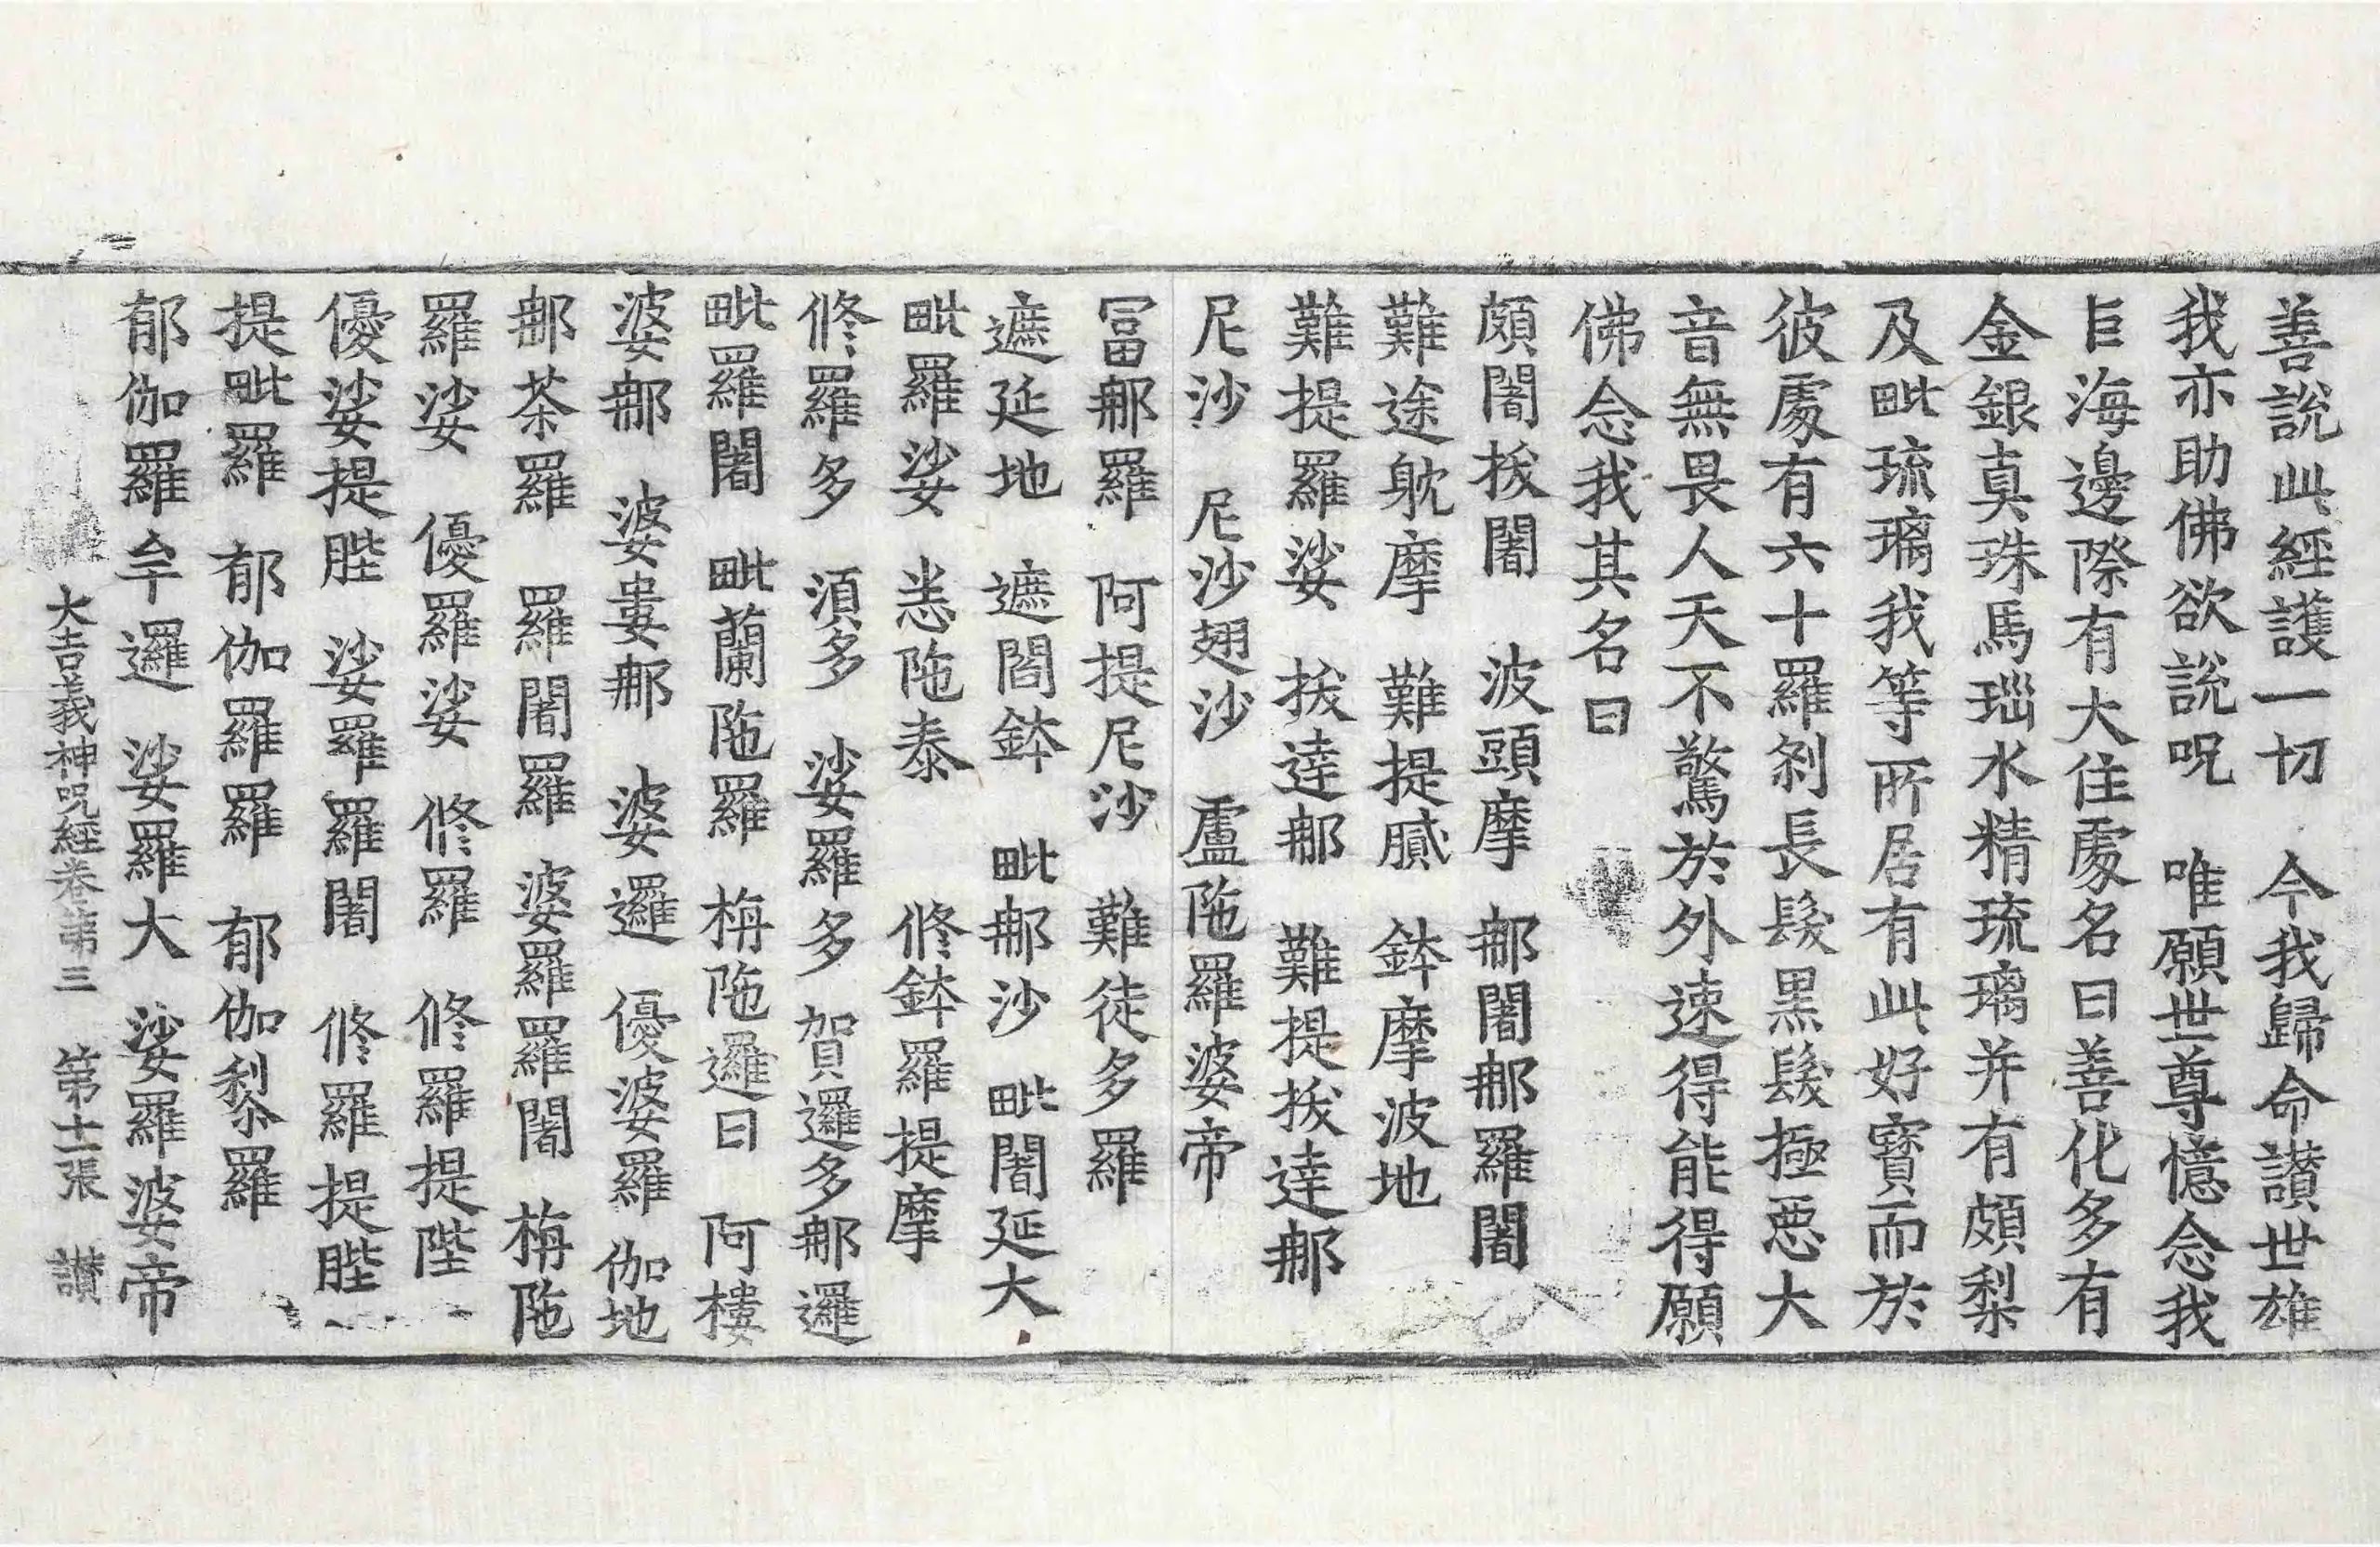 善說此經護一切　今我歸命讃世雄
我亦助佛欲說呪　唯願世尊憶念我
巨海邊際有大住處名曰善化多有
金銀真珠馬瑙水精琉璃并有頗梨
及毗琉璃我等所居有此好寶而於
彼處有六十羅剎長髮黑髮極惡大
音無畏人天不驚於外速得能得願
佛念我其名曰
頗闍拔闍　波頭摩　那闍那羅闍
難途躭摩　難提膩　鉢摩波地
難提羅娑　拔達那　難提拔達那
尼沙　尼沙翅沙　盧陁羅婆帝
冨那羅　阿提尼沙　難徒多羅
遮延地　遮閻鉢　毗那沙　毗闍延大
毗羅娑　恙陁泰　修鉢羅提摩
修羅多　須多　娑羅多　賀邏多那邏
毗羅闍　毗蘭陁羅　栴陁邏曰　阿樓
婆那　婆婁那　婆邏　優婆羅　伽地
那荼羅　羅闍羅　婆羅羅闍　栴陁
羅娑　優羅娑　修羅　修羅提陛
優娑提𨹹　娑羅羅闍　修羅提𨹹
提毗羅　郁伽羅羅　郁伽梨羅
郁伽羅牟邏　娑羅大　娑羅婆帝
大吉義神呪經卷第三　第十一張　讃